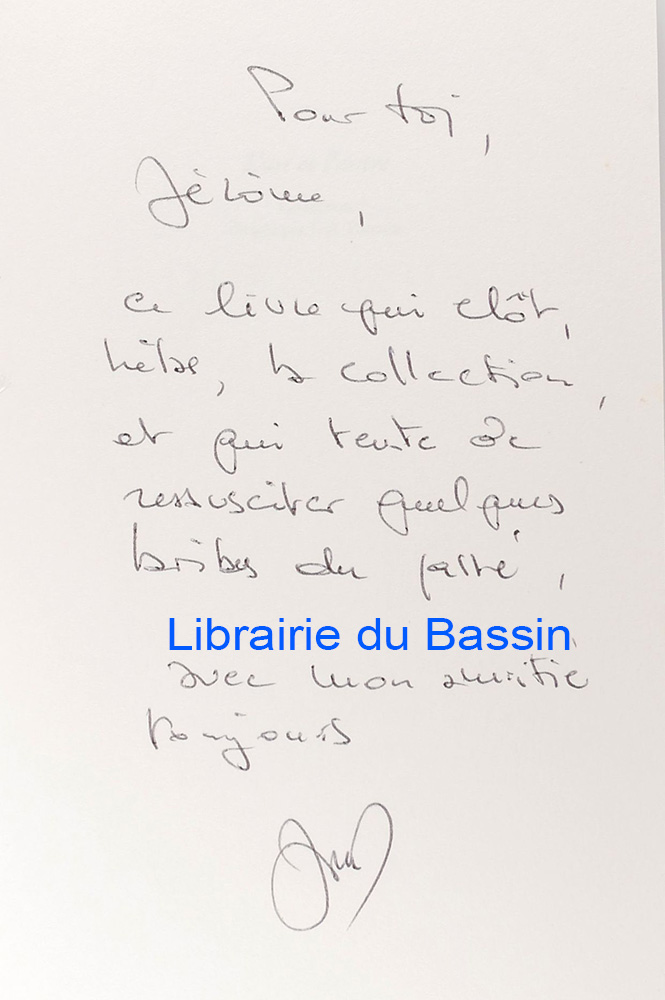 Pour toi,
Jérôme,
ce livre qui clôt,
hélas, la collection,
et qui tente de
ressusciter quelques
bribes du passé,
Librairie du Bassin
avec mon amitié
toujours